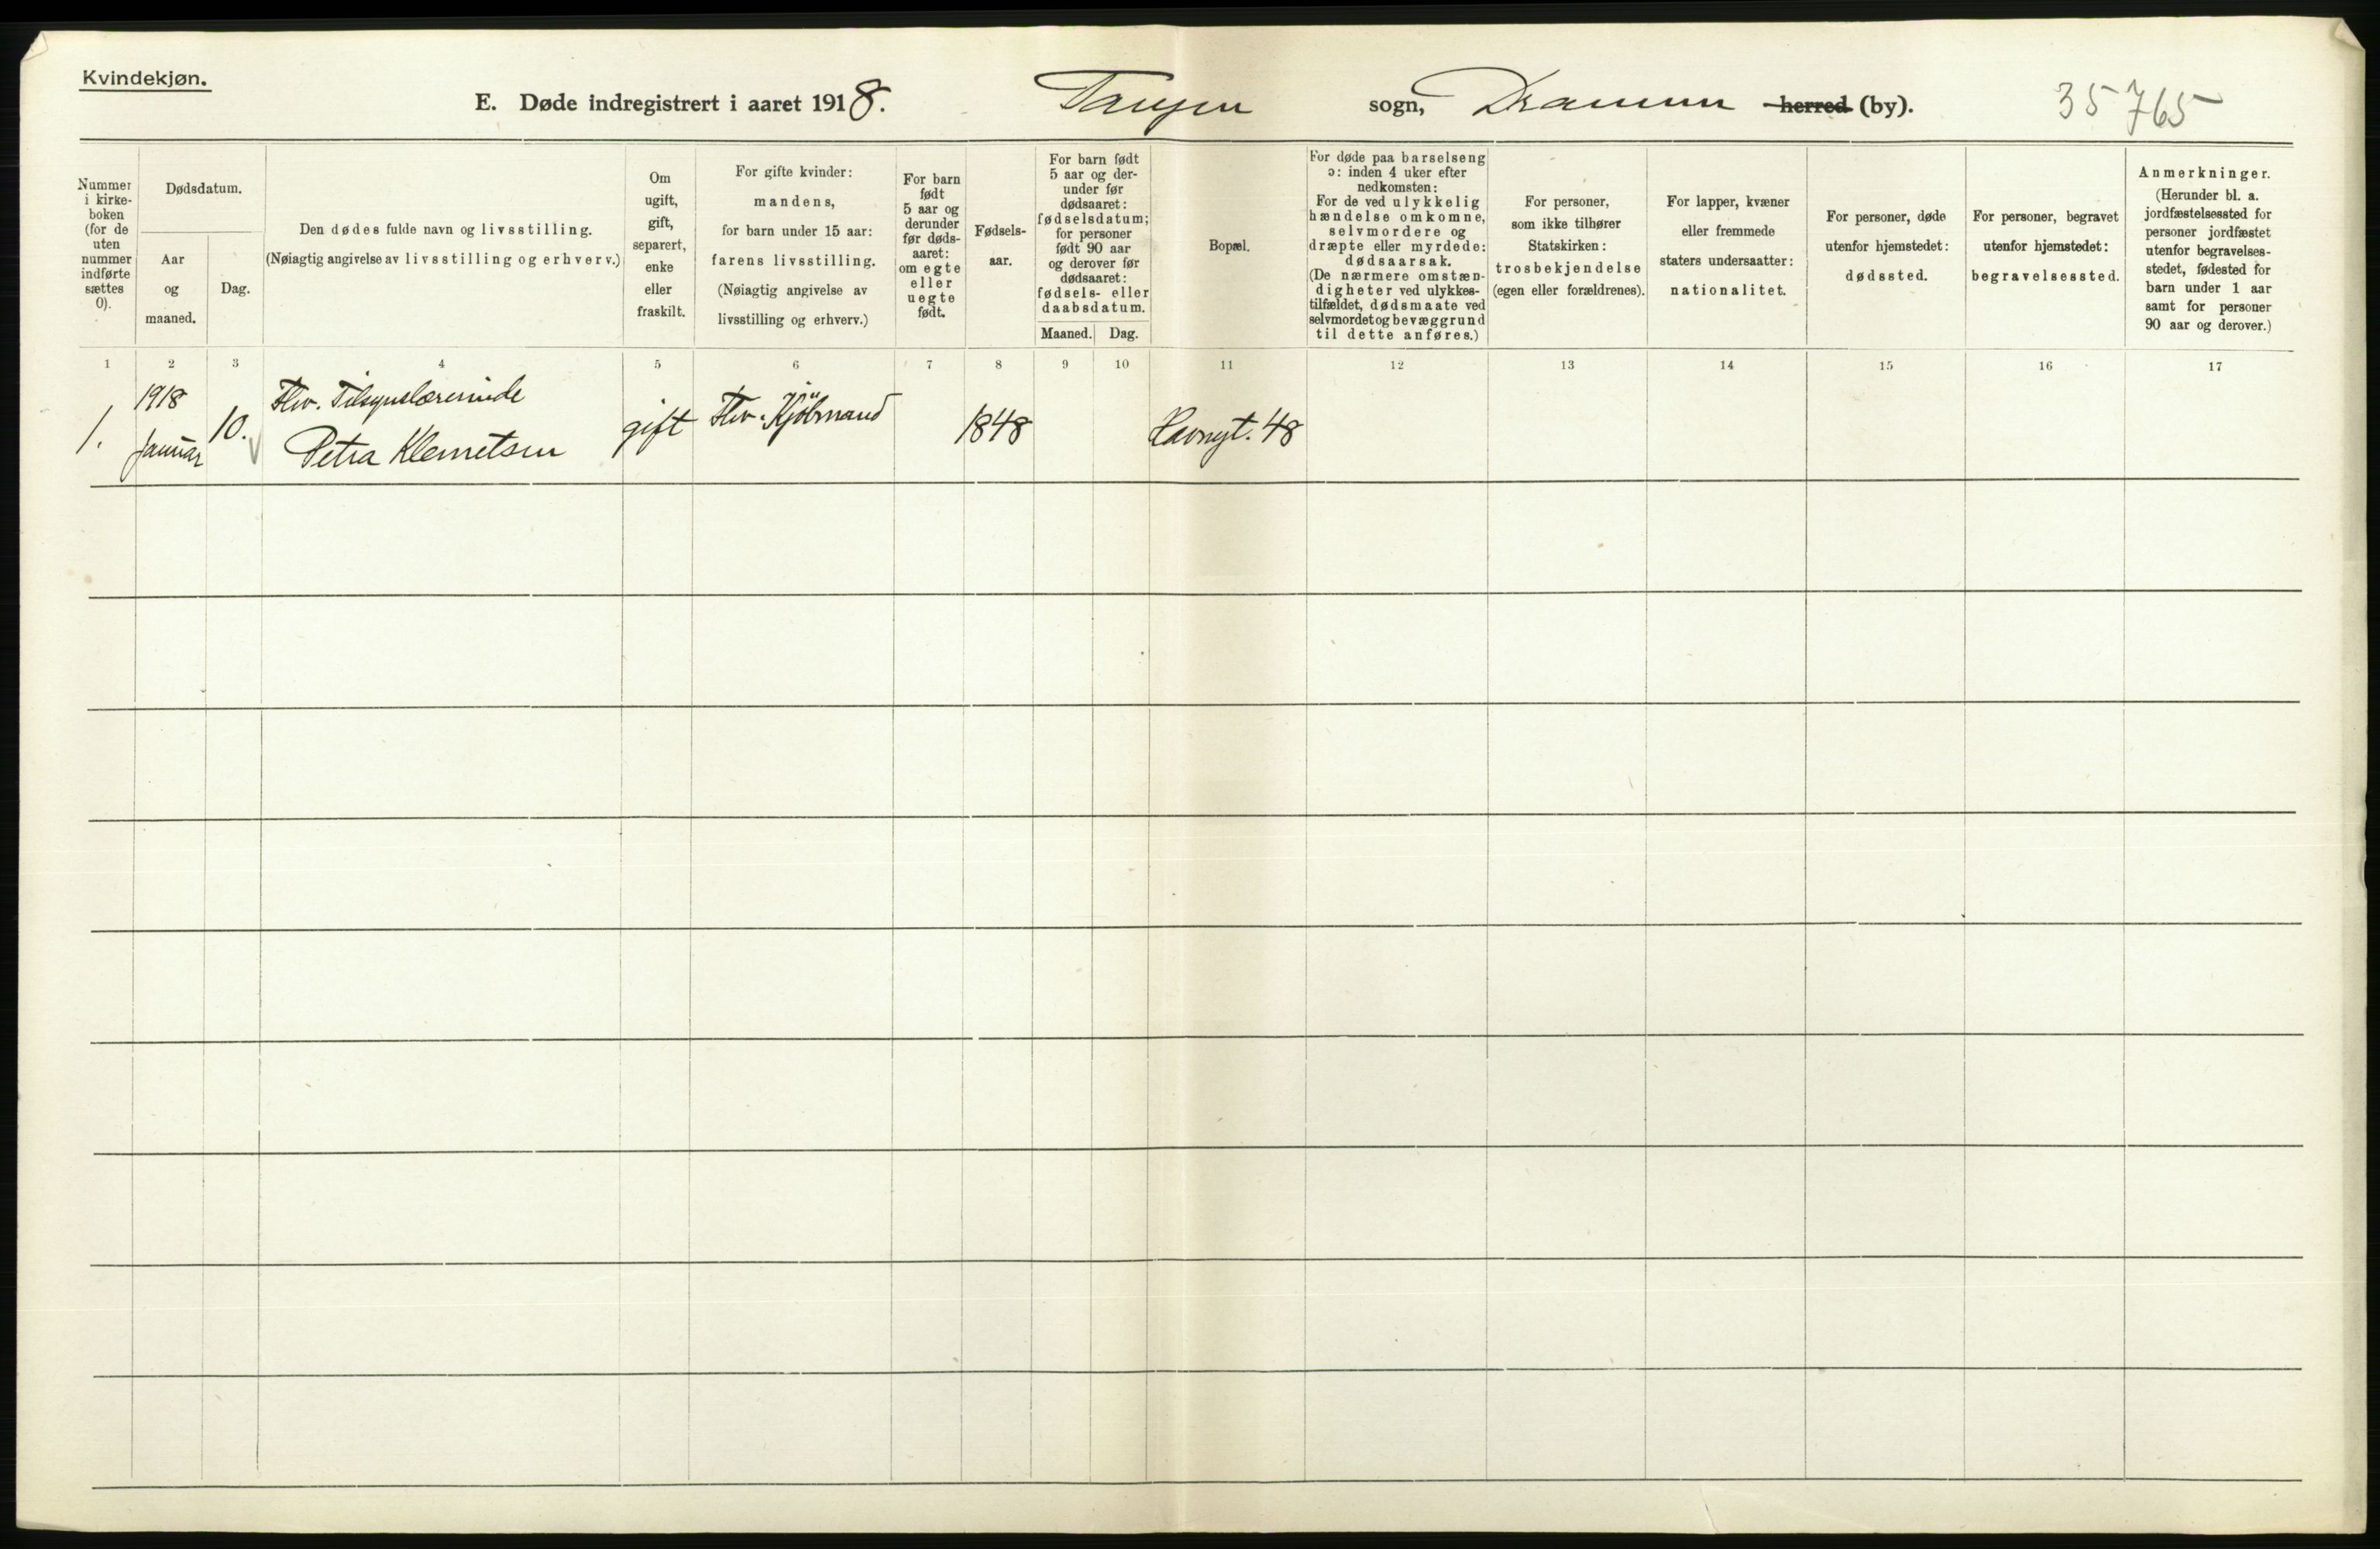 Kvindekjøn.
E. Døde indregistrert i aaret 1918. Tangen sogn, Drammen herred (by). 35765
Nummer
i kirke-
boken
(for de
uten
nummer
indførte
sættes
0).
Dødsdatum.
Aar
og
maaned.
Dag.
Den dødes fulde navn og livsstilling.
(Nøiagtig angivelse av livsstilling og erhverv.)
Om
ugift,
gift,
separert,
enke
eller
fraskilt.
For gifte kvinder:
mandens,
for barn under 15 aar:
farens livsstilling.
(Nøiagtig angivelse av
livsstilling og erhverv.)
For barn
født
5 aar og
derunder
før døds-
aaret:
om egte
eller
uegte
født.
Fødsels-
aar.
For barn født
5 aar og der-
under før
dødsaaret:
fødselsdatum;
for personer
født 90 aar
og derover før
dødsaaret:
fødsels- eller
daabsdatum.
Maaned. Dag.
Bopæl.
For døde paa barselseng
ɔ: inden 4 uker efter
nedkomsten:
For de ved ulykkelig
hændelse omkomne,
selvmordere og
dræpte eller myrdede:
dødsaarsak.
(De nærmere omstæn-
digheter ved ulykkes-
tilfældet, dødsmaate ved
selvmordet og bevæggrund
til dette anføres.)
For personer,
som ikke tilhører
Statskirken:
trosbekjendelse
(egen eller forældrenes).
For lapper, kvæner
eller fremmede
staters undersaatter:
nationalitet.
For personer, døde
utenfor hjemstedet:
dødssted.
For personer, begravet
utenfor hjemstedet:
begravelsessted.
Anmerkninger.
(Herunder bl. a.
jordfæstelsessted for
personer jordfæstet
utenfor begravelses-
stedet, fødested for
barn under 1 aar
samt for personer
90 aar og derover.)
1 2 3 4 5 6 7 8 9 10 11 12 13 14 15 16 17
1918 Fhv. Tilsynslærerinde
1. Januar 10. Petra Klemetsen gift Fhv. Kjöbmand 1848 Havnegt. 48